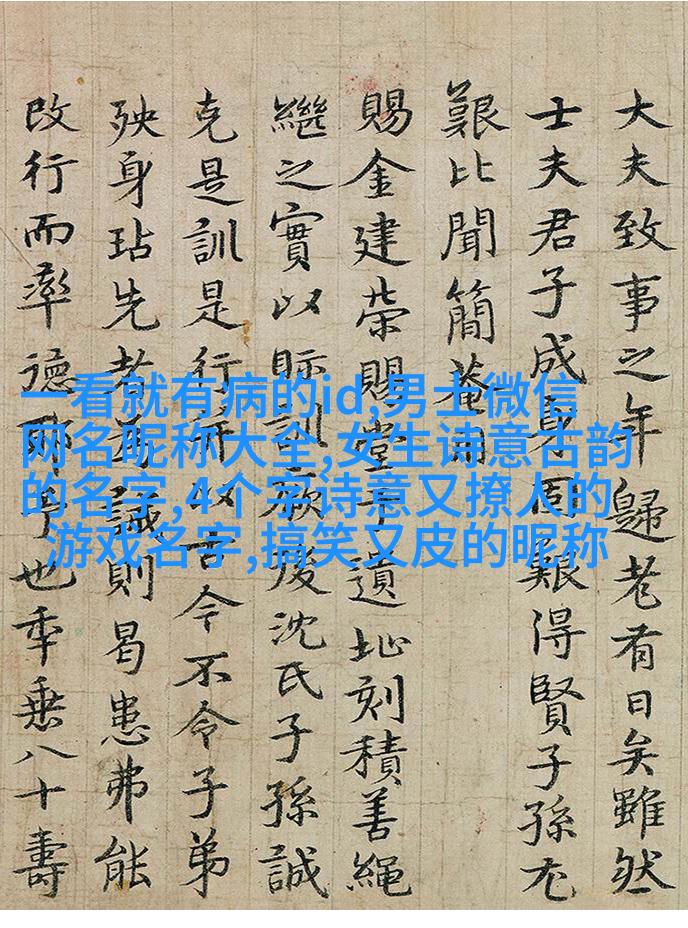 大夫致事之年歸老有日矣雖然
士夫君子成身固艱得賢子孫尤
艱比聞簡菴用
賜金建榮賜堂于遺址刻積善繩
繼之實以眎訓厥後沈氏子孫誠
克是訓是行以古今不令子弟
殃身玷先者為誡則曷患弗能
改行而率德耶亨也年垂八十壽
一看就有病的id,男士微信
网名昵称大全,女生诗意古韵
的名字,4个字诗意又撩人的
游戏名字,搞笑又皮的昵称